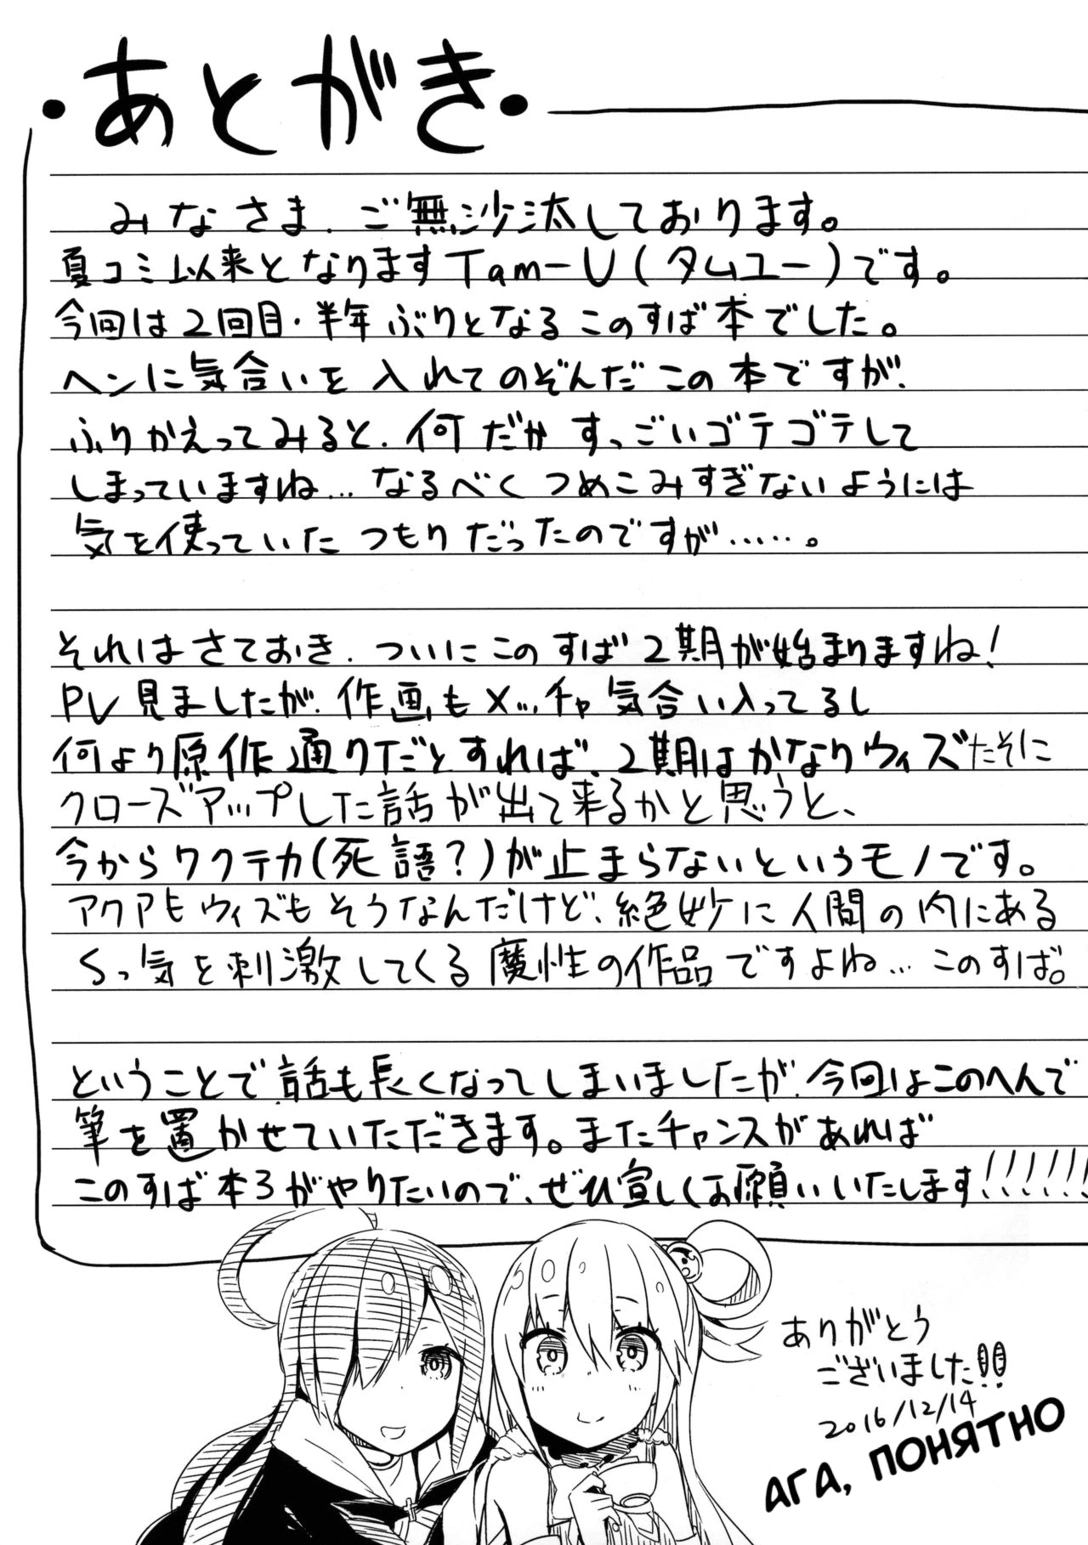 ・あとがき・
みなさま、ご無沙汰しております。
夏コミ以来となりますTam-U(タムユー)です。
今回は2回目・半年ぶりとなるこのすば本でした。
ヘンに気合いを入れてのぞんだこの本ですが、
ふりかえってみると、何だかすっごいゴテゴテして
しまっていますね…なるべくつめこみすぎないようには
気を使っていたつもりだったのですが……。
それはさておき、ついにこのすば2期が始まりますね!
PV見ましたが、作画もメッチャ気合い入ってるし
何より原作通りだとすれば、2期はかなりウィズたそに
クローズアップした話が出て来るかと思うと、
今からワクテカ(死語?)が止まらないというモノです。
アクアもウィズもそうなんだけど、絶妙に人間の内にある
Sっ気を刺激してくる魔性の作品ですよね…このすば。
ということで話も長くなってしまいましたが、今回はこのへんで
筆を置かせていただきます。またチャンスがあれば
このすば本3がやりたいので、ぜひ宜しくお願いいたします!!!!!!
ありがとう
ございました!!
2016/12/14
АГА, ПОНЯТНО